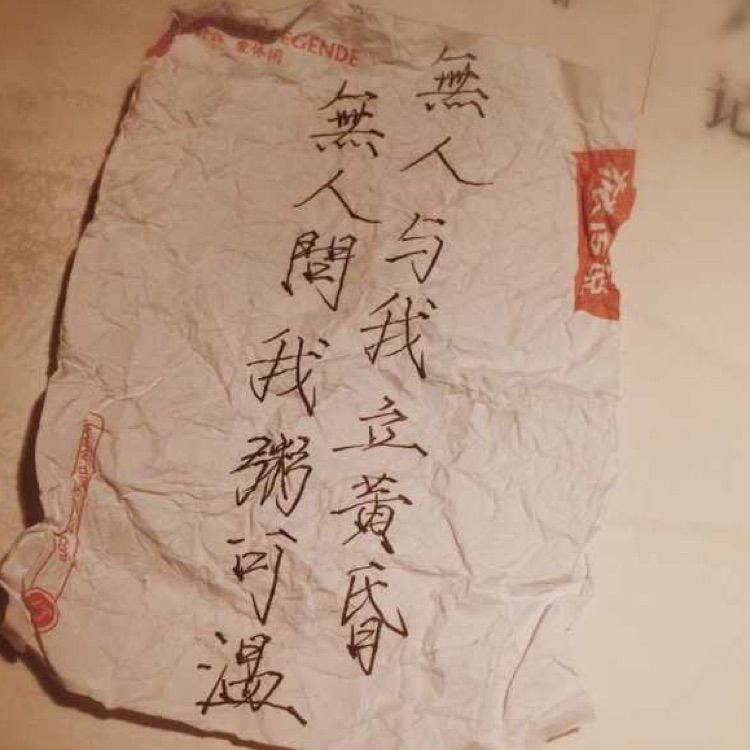 無人与我立黃昏
無人問我粥可溫
EGENDE
记